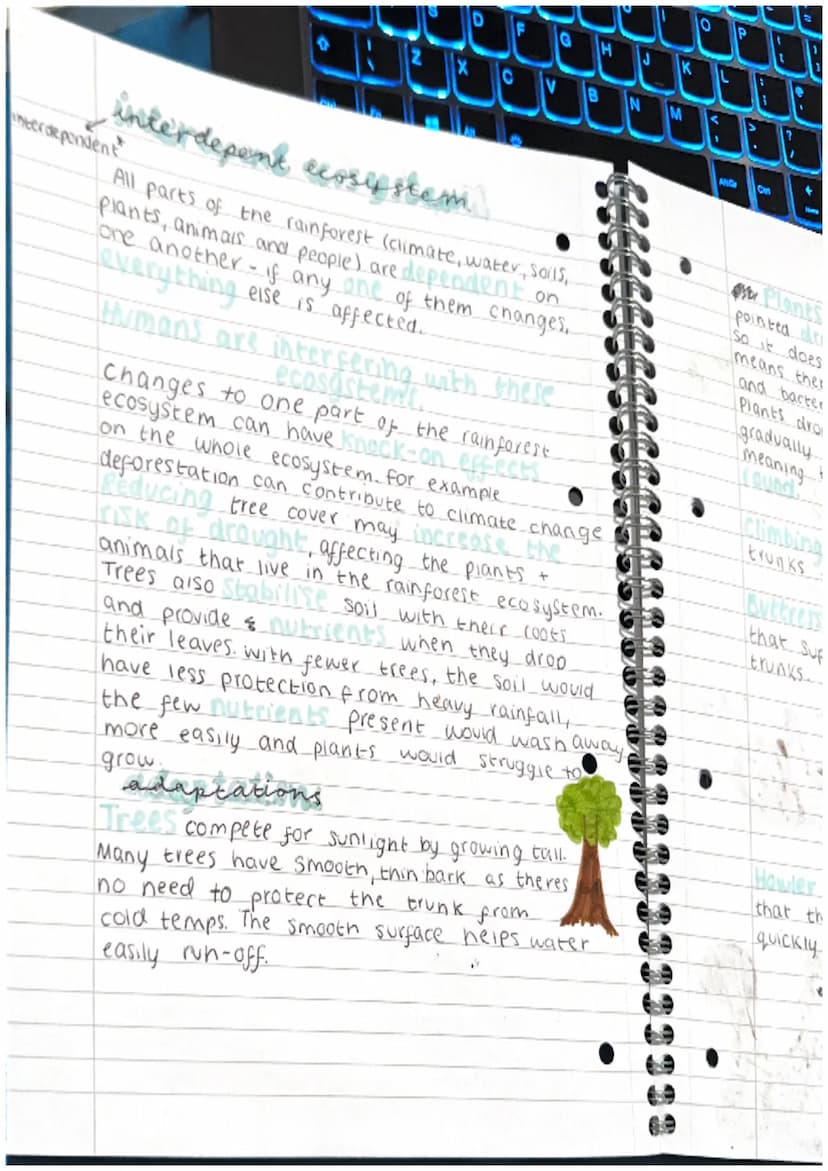 interdepent ecosystem
interdependent*
All parts of the rainforest (climate, water, soils,
plants, animals and people) are dependent on
one another - if any one of them changes,
everything else is affected.
Humans are interfering with these
ecosystems.
Changes to one part of the rainforest
ecosystem can have knock-on effects
on the whole ecosystem. for example
deforestation can contribute to climate change
Reducing tree cover may increase the
risk of drought, affecting the plants +
animals that live in the rainforest ecosystem.
Trees also stabilise soil with their roots
and provide nutrients when they drop
their leaves. with fewer trees, the soil would
have less protection from heavy rainfall,
the few nutrients present would wash away
more easily and plants would struggle to
grow.
adaptations
Trees compete for sunlight by growing tall.
Many trees have smooth, thin bark as theres
no need to protect the trunk from
cold temps. The smooth surface helps water
easily run-off.
Plants
pointed
so it does
means
and
Plants
gradually
meaning
round.
Climbing
trunks
Buttress
that
trunks.
Howler
that
quickly
S D F G H J K L
Z X C V B N M
O P
Alt
AltGr
Ctrl
Home